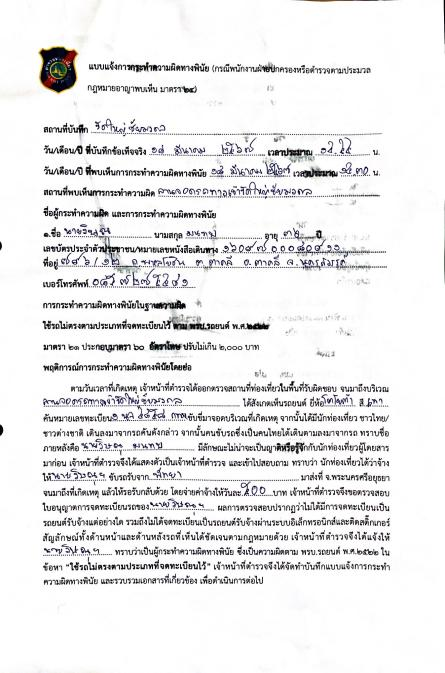 แบบแจ้งการกระทำความผิดทางพินัย (กรณีพนักงานฝ่ายปกครองหรือตำรวจตามประมวล
กฎหมายอาญาพบเห็น มาตรา ๒๔)
สถานที่บันทึก วัดใหญ่ชัยมงคล
วัน/เดือน/ปี ที่บันทึกข้อเท็จจริง มีนาคม ๒๕๖๗ เวลาประมาณ น.
วัน/เดือน/ปี ที่พบเห็นการกระทำความผิดทางพินัย มีนาคม ๒๕๖๗ เวลาประมาณ น.
สถานที่พบเห็นการกระทำความผิด ลานจอดรถทางเข้าวัดใหญ่ชัยมงคล
ชื่อผู้กระทำความผิด และการกระทำความผิดทางพินัย
๑.ชื่อ นามสกุล อายุ ปี
เลขบัตรประจำตัวประชาชน/หมายเลขหนังสือเดินทาง
ที่อยู่ ต.ตาคลี อ.ตาคลี จ.นครสวรรค์
เบอร์โทรศัพท์
การกระทำความผิดทางพินัยในฐานความผิด
ใช้รถไม่ตรงตามประเภทที่จดทะเบียนไว้ ตาม พรบ.รถยนต์ พ.ศ.๒๕๒๒
มาตรา ๒๑ ประกอบมาตรา ๖๐ อัตราโทษ ปรับไม่เกิน ๒,๐๐๐ บาท
พฤติการณ์การกระทำความผิดทางพินัยโดยย่อ
ตามวันเวลาที่เกิดเหตุ เจ้าหน้าที่ตำรวจได้ออกตรวจสถานที่ท่องเที่ยวในพื้นที่รับผิดชอบ จนมาถึงบริเวณ
ลานจอดรถทางเข้าวัดใหญ่ชัยมงคล ได้สังเกตเห็นรถยนต์ ยี่ห้อ โตโยต้า สี เทา
คันหมายเลขทะเบียน ขับขี่มาจอดบริเวณที่เกิดเหตุ จากนั้นได้มีนักท่องเที่ยว ชาวไทย/
ชาวต่างชาติ เดินลงมาจากรถคันดังกล่าว จากนั้นคนขับรถซึ่งเป็นคนไทยได้เดินตามลงมาจากรถ ทราบชื่อ
ภายหลังคือ มีลักษณะไม่น่าจะเป็นญาติหรือรู้จักกับนักท่องเที่ยวผู้โดยสาร
มาก่อน เจ้าหน้าที่ตำรวจจึงได้แสดงตัวเป็นเจ้าหน้าที่ตำรวจ และเข้าไปสอบถาม ทราบว่า นักท่องเที่ยวได้ว่าจ้าง
ให้ ขับรถรับจาก พัทยา มาส่งที่ จ.พระนครศรีอยุธยา
จนมาถึงที่เกิดเหตุ แล้วให้รอรับกลับด้วย โดยจ่ายค่าจ้างให้วันละ ๕๐๐ บาท เจ้าหน้าที่ตำรวจจึงขอตรวจสอบ
ใบอนุญาตการจดทะเบียนรถของ ผลการตรวจสอบปรากฏว่าไม่ได้มีการจดทะเบียนเป็น
รถยนต์รับจ้างแต่อย่างใด รวมถึงไม่ได้จดทะเบียนเป็นรถยนต์รับจ้างผ่านระบบอิเล็กทรอนิกส์และติดสติ๊กเกอร์
สัญลักษณ์ทั้งด้านหน้าและด้านหลังรถที่เห็นได้ชัดเจนตามกฎหมายด้วย เจ้าหน้าที่ตำรวจจึงได้แจ้งให้
ทราบว่าเป็นผู้กระทำความผิดทางพินัย ซึ่งเป็นความผิดตาม พรบ.รถยนต์ พ.ศ.๒๕๒๒ ใน
ข้อหา "ใช้รถไม่ตรงตามประเภทที่จดทะเบียนไว้" เจ้าหน้าที่ตำรวจจึงได้จัดทำบันทึกแบบแจ้งการกระทำ
ความผิดทางพินัย และรวบรวมเอกสารที่เกี่ยวข้อง เพื่อดำเนินการต่อไป